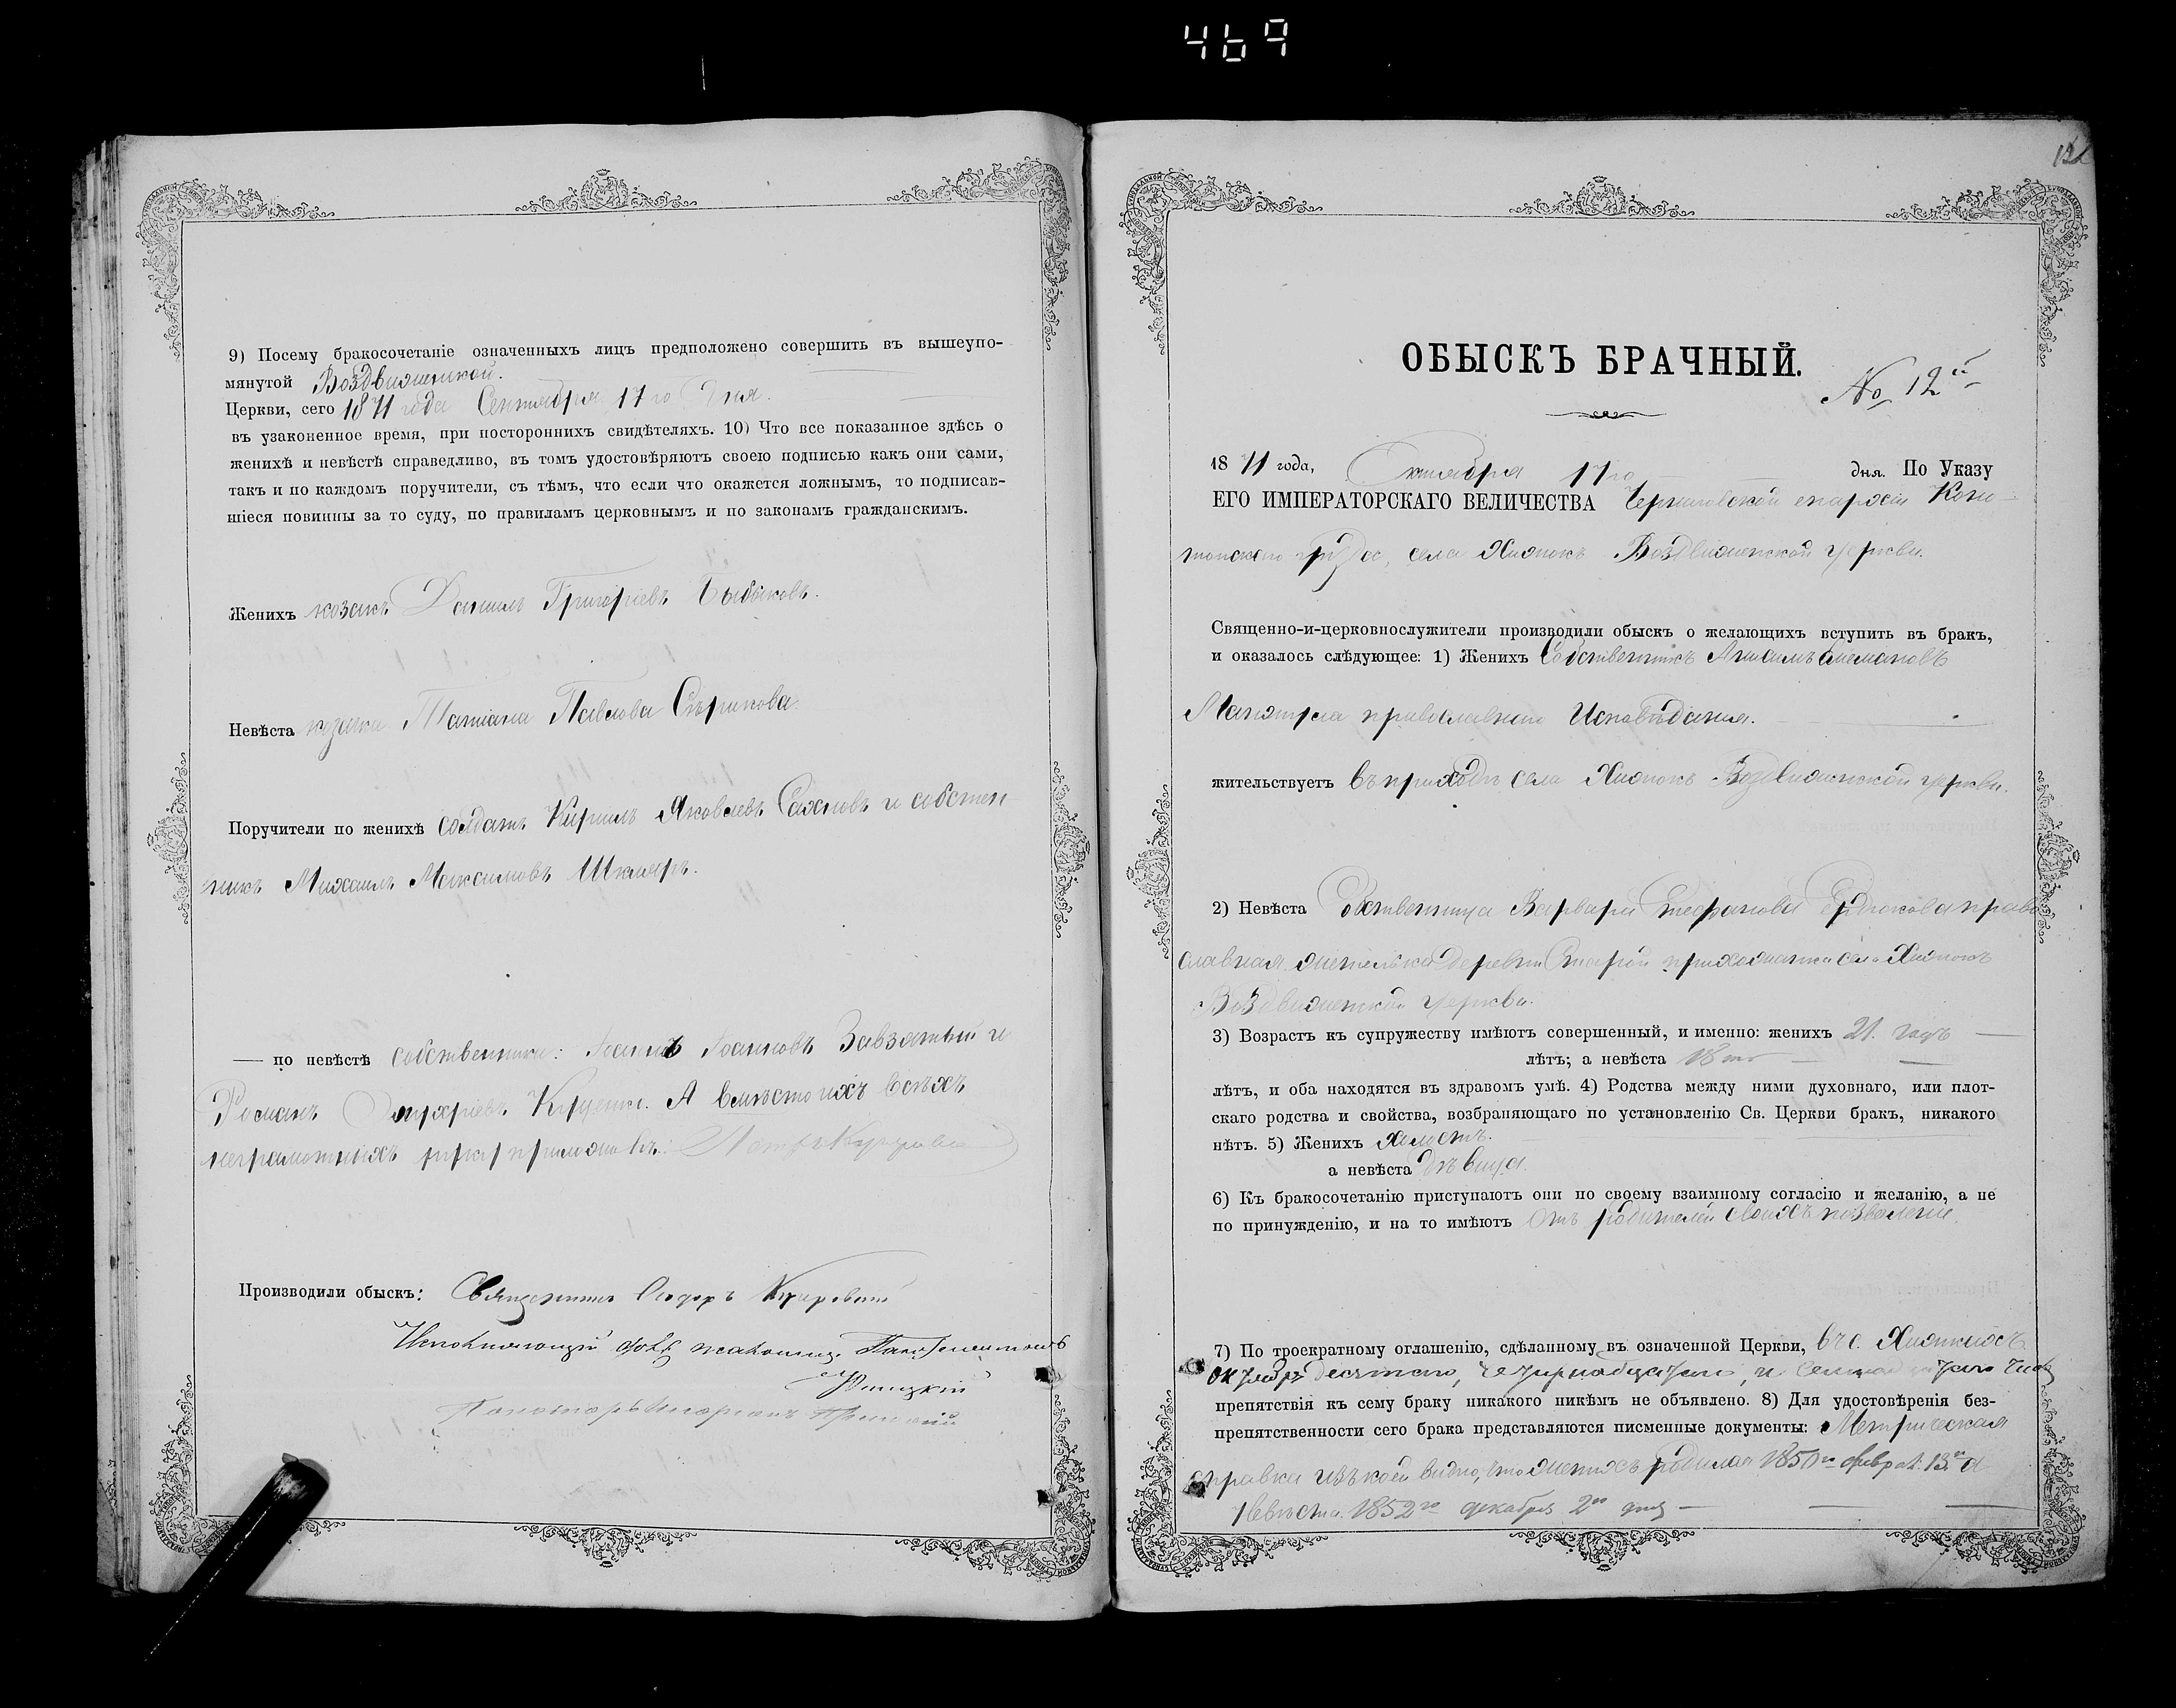 469
9) Посему бракосочетаніе означенныхъ лицъ предположено совершить въ вышеупо-
мянутой Воздвиженской.
Церкви, сего 1871 года Сентября 17го дня.
въ узаконенное время, при постороннихъ свидѣтеляхъ. 10) Что все показанное здѣсь о
женихѣ и невѣстѣ справедливо, въ томъ удостовѣряютъ своею подписью какъ они сами,
такъ и по каждомъ поручители, съ тѣмъ, что если что окажется ложнымъ, то подписав-
шіеся повинны за то суду, по правиламъ церковнымъ и по законамъ гражданскимъ.
Женихъ козакъ Даніилъ Григоріевъ
Невѣста козачка Татіана Павлова Сѣрикова
Поручители по женихѣ солдатъ Кирилъ Яковлевъ Сахновъ и собствен
никъ Михаилъ Максимовъ Шкляръ.
— по невѣстѣ собственники: Іоаннъ Іоанновъ Завзятый и
Романъ А вмѣсто ихъ всѣхъ
неграмотныхъ руку приложивъ:
Производили обыскъ: Священникъ
Исполняющій
122
ОБЫСКЪ БРАЧНЫЙ.
№ 12й
1871 года, Октября 17го дня. По Указу
ЕГО ИМПЕРАТОРСКАГО ВЕЛИЧЕСТВА Черниговской епархіи Коно-
топскаго уѣзда, села Хижокъ Воздвиженской церкви.
Священно-и-церковнослужители производили обыскъ о желающихъ вступить въ бракъ,
и оказалось слѣдующее: 1) Женихъ Собственникъ
православнаго Исповѣданія.
жительствуетъ въ приходѣ села Хижокъ Воздвиженской церкви.
2) Невѣста Собственница Варвара Стефанова право
славная жителька деревни Старой прихожанка села Хижокъ
Воздвиженской церкви.
3) Возрастъ къ супружеству имѣютъ совершенный, и именно: женихъ 21. годъ
лѣтъ; а невѣста 18ть
лѣтъ, и оба находятся въ здравомъ умѣ. 4) Родства между ними духовнаго, или плот-
скаго родства и свойства, возбраняющаго по установленію Св. Церкви бракъ, никакого
нѣтъ. 5) Женихъ холостъ.
а невѣста дѣвица.
6) Къ бракосочетанію приступаютъ они по своему взаимному согласію и желанію, а не
по принужденію, и на то имѣютъ отъ родителей своихъ позволеніе.
7) По троекратному оглашенію, сдѣланному въ означенной Церкви, въ с. Хижкахъ
Октября десятаго, четырнадцатаго, и семнадцатаго числ
препятствія къ сему браку никакого никѣмъ не объявлено. 8) Для удостовѣренія без-
препятственности сего брака представляются писменные документы: Метрическая
справка изъ коей видно, что женихъ родился 1850го февраля 13го а
Невѣста 1852го декабря 2го дня